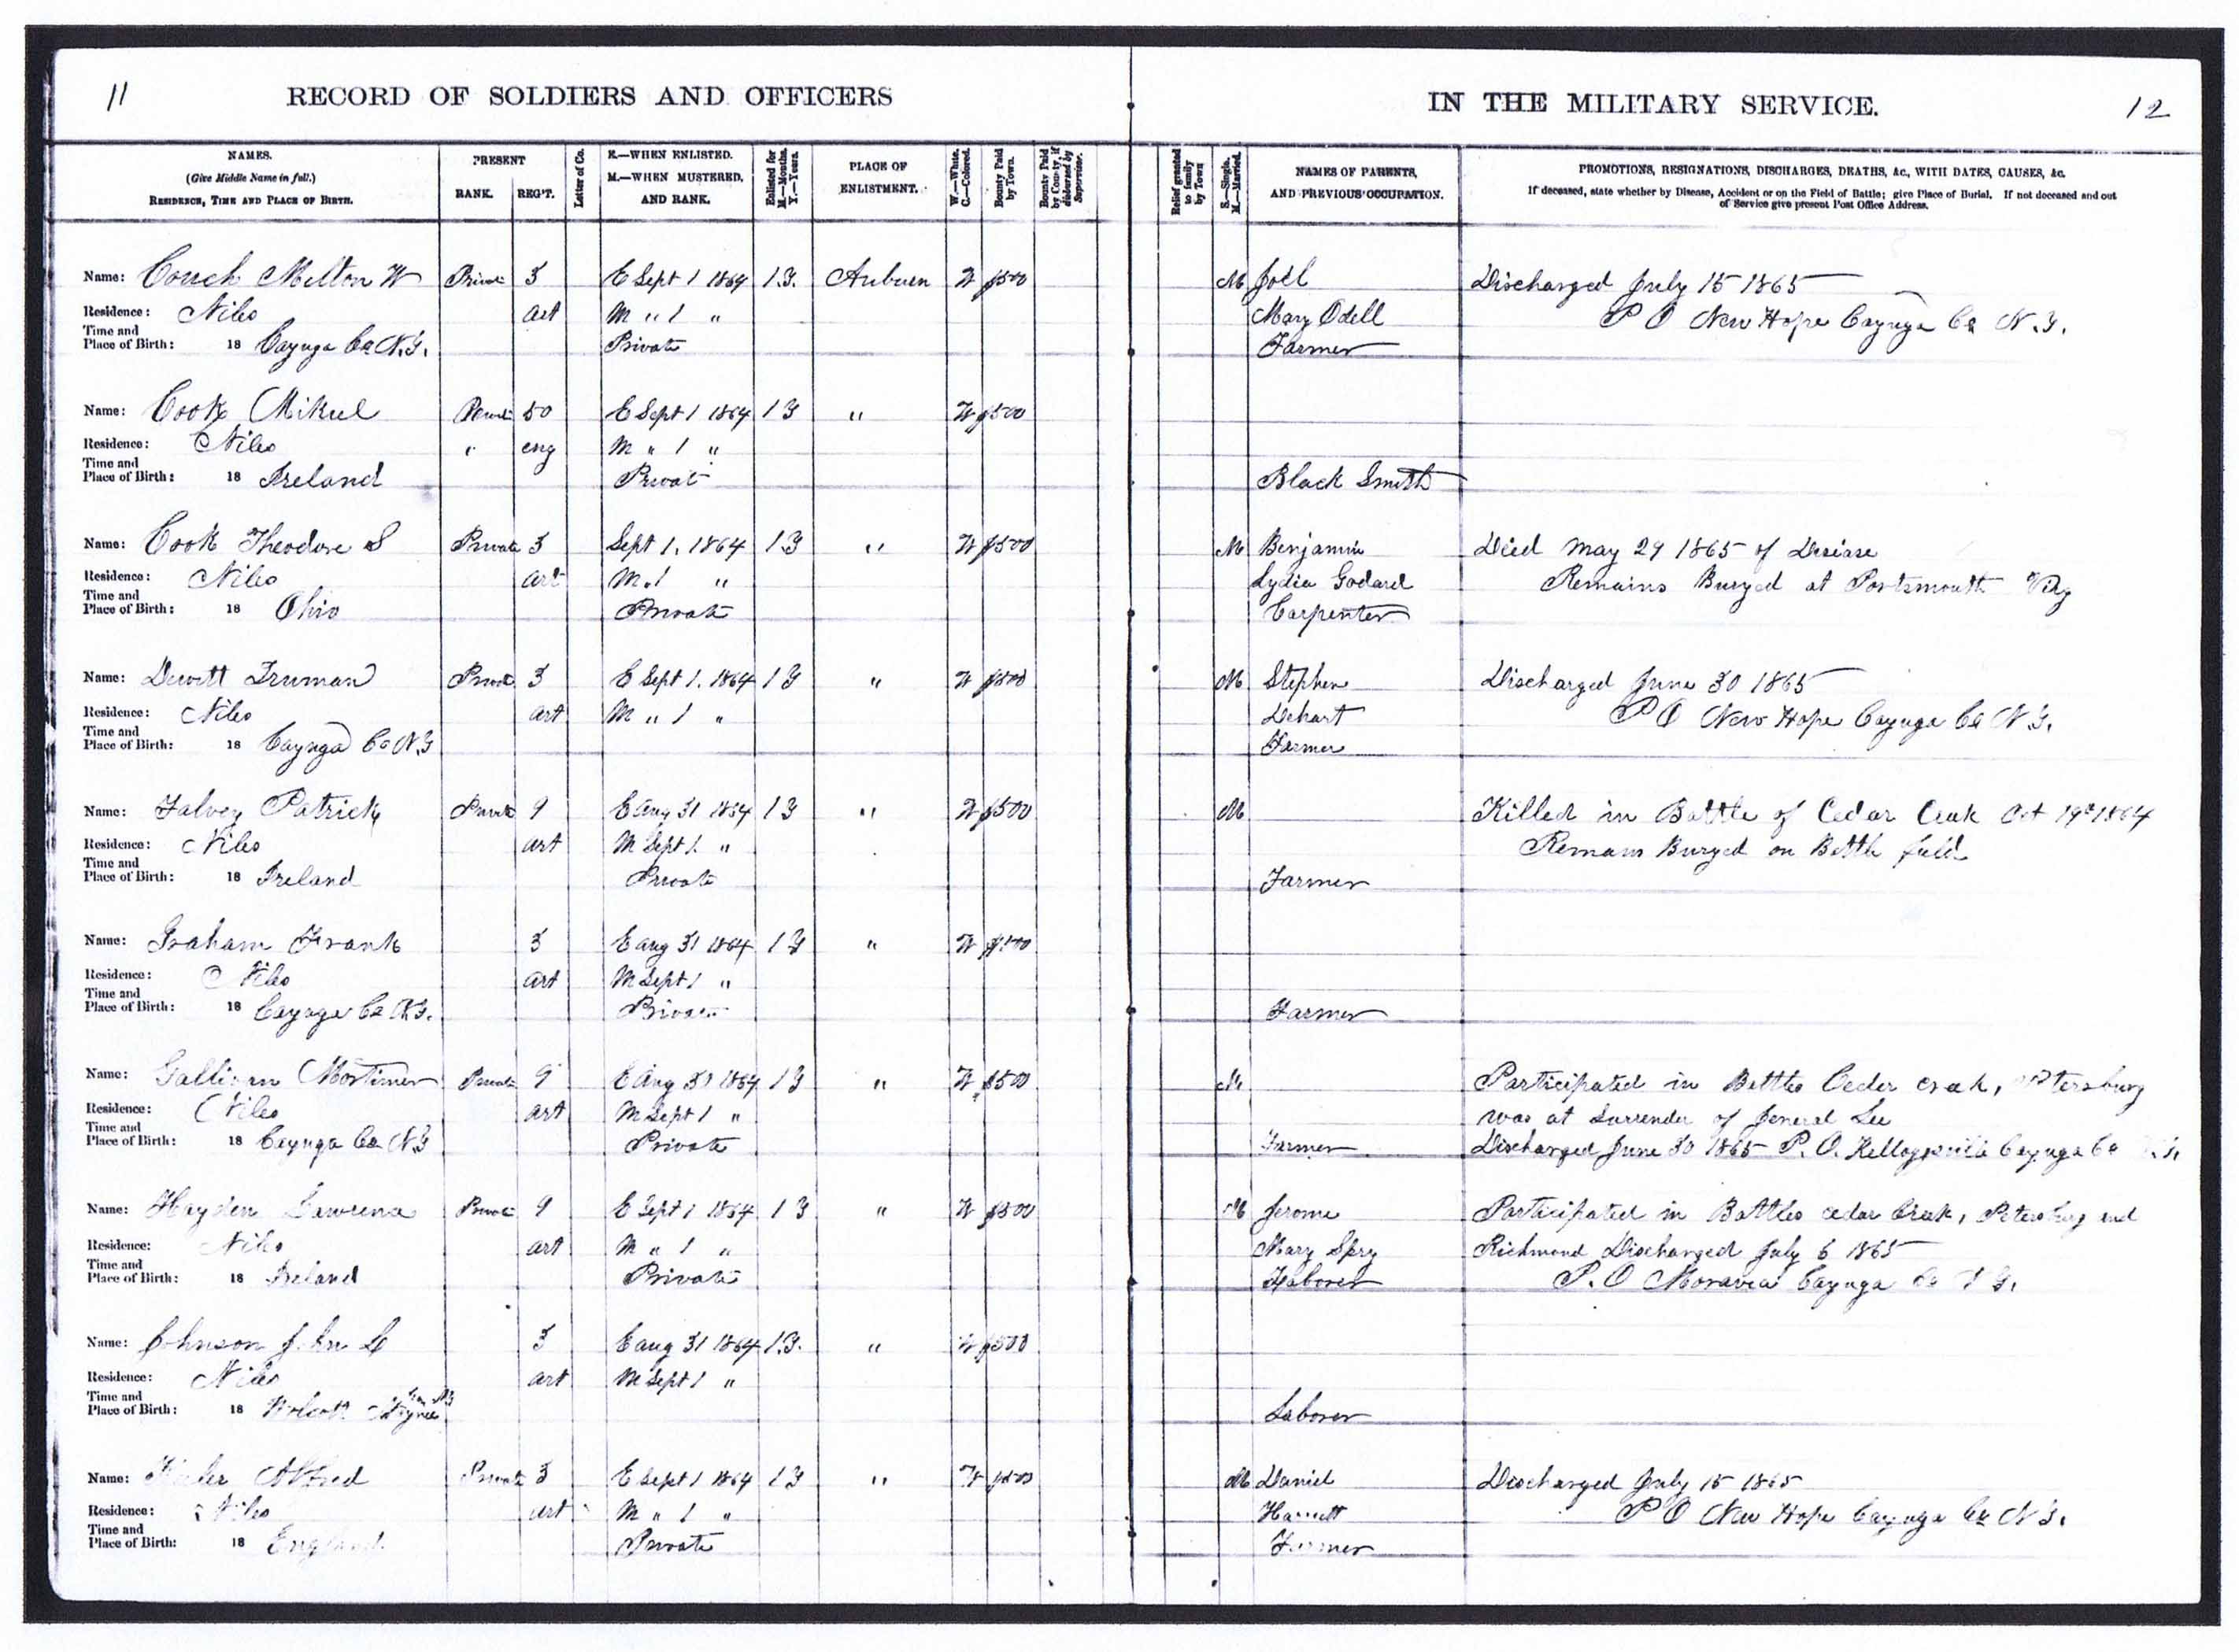 11
RECORD OF SOLDIERS AND OFFICERS
IN THE MILITARY SERVICE.
12
NAMES.
(Give Middle Name in full.)
RESIDENCE, TIME AND PLACE OF BIRTH.
PRESENT
RANK. REG'T.
Letter of Co.
E.—WHEN ENLISTED.
M.—WHEN MUSTERED.
AND RANK.
Enlisted for
M.—Months.
Y.—Years.
PLACE OF
ENLISTMENT.
W.—White.
C.—Colored.
Bounty Paid
by Town.
Bounty Paid
by County, if
disbursed by
Supervisor.
Relief granted
to family
by Town
S.—Single.
M.—Married.
NAMES OF PARENTS,
AND PREVIOUS OCCUPATION.
PROMOTIONS, RESIGNATIONS, DISCHARGES, DEATHS, &c., WITH DATES, CAUSES, &c.
If deceased, state whether by Disease, Accident or on the Field of Battle; give Place of Burial. If not deceased and out
of Service give present Post Office Address.
Name: Couch Melton W Private 3 E Sept 1 1864 1 Y. Auburn W $500 M Joel Discharged July 15 1865
Residence: Niles art M " 1 " Mary Odell P O New Hope Cayuga Co N.Y.
Time and
Place of Birth: 18 Cayuga Co N.Y. Private Farmer
Name: Cook Mikel Private 50 E Sept 1 1864 1 Y " W $500
Residence: Niles " eng M " 1 "
Time and
Place of Birth: 18 Ireland Privat Black Smith
Name: Cook Theodore S Private 3 Sept 1. 1864 1 Y " W $500 M Benjamin Died May 29 1865 of Desease
Residence: Niles art M. 1 " Lydia Godard Remains Buryed at Portsmouth Virg
Time and
Place of Birth: 18 Ohio Private Carpenter
Name: Dewitt Truman Private 3 E Sept 1. 1864 1 Y " W $500 M Stephen Discharged June 30 1865
Residence: Niles art M " 1 " Dehart P O New Hope Cayuga Co N Y.
Time and
Place of Birth: 18 Cayuga Co N.Y Farmer
Name: Falvey Patrick Private 9 E Aug 31 1864 1 Y " W $500 M Killed in Battle of Cedar Creek Oct 19th 1864
Residence: Niles art M Sept 1. " Remains Buryed on Battle field
Time and
Place of Birth: 18 Ireland Private Farmer
Name: Graham Frank 3 E aug 31 1864 1 Y " W $500
Residence: Niles art M Sept 1 "
Time and
Place of Birth: 18 Cayuga Co N.Y. Private Farmer
Name: Gallivan Mortimer Private 9 E Aug 31 1864 1 Y " W $500 M Participated in Battles Ceder creek, Petersburg
Residence: Niles art M Sept 1 " was at Surrender of General Lee
Time and
Place of Birth: 18 Cayuga Co N.Y Private Farmer Discharged June 30 1865 P. O. Kelloggsville Cayuga Co
Name: Hayden Lawrence Private 9 E Sept 1 1864 1 Y " W $500 M Jerome Participated in Battles cedar Creek, Petersburg and
Residence: Niles art M " 1 " Mary Spry Richmond Discharged July 6 1865
Time and
Place of Birth: 18 Ireland Private Laborer P. O Moravia Cayuga Co Y.
Name: Johnson John L 3 E aug 31 1864 1.Y. " W $500
Residence: Niles art M Sept 1 "
Time and
Place of Birth: 18 Wolcott Wayne Laborer
Name: Alfred Private 3 E Sept 1 1864 1 Y " W $500 M Daniel Discharged July 15 1865
Residence: Niles art M " 1 " Harriett P O New Hope Cayuga Co N Y.
Time and
Place of Birth: 18 England Private Farmer